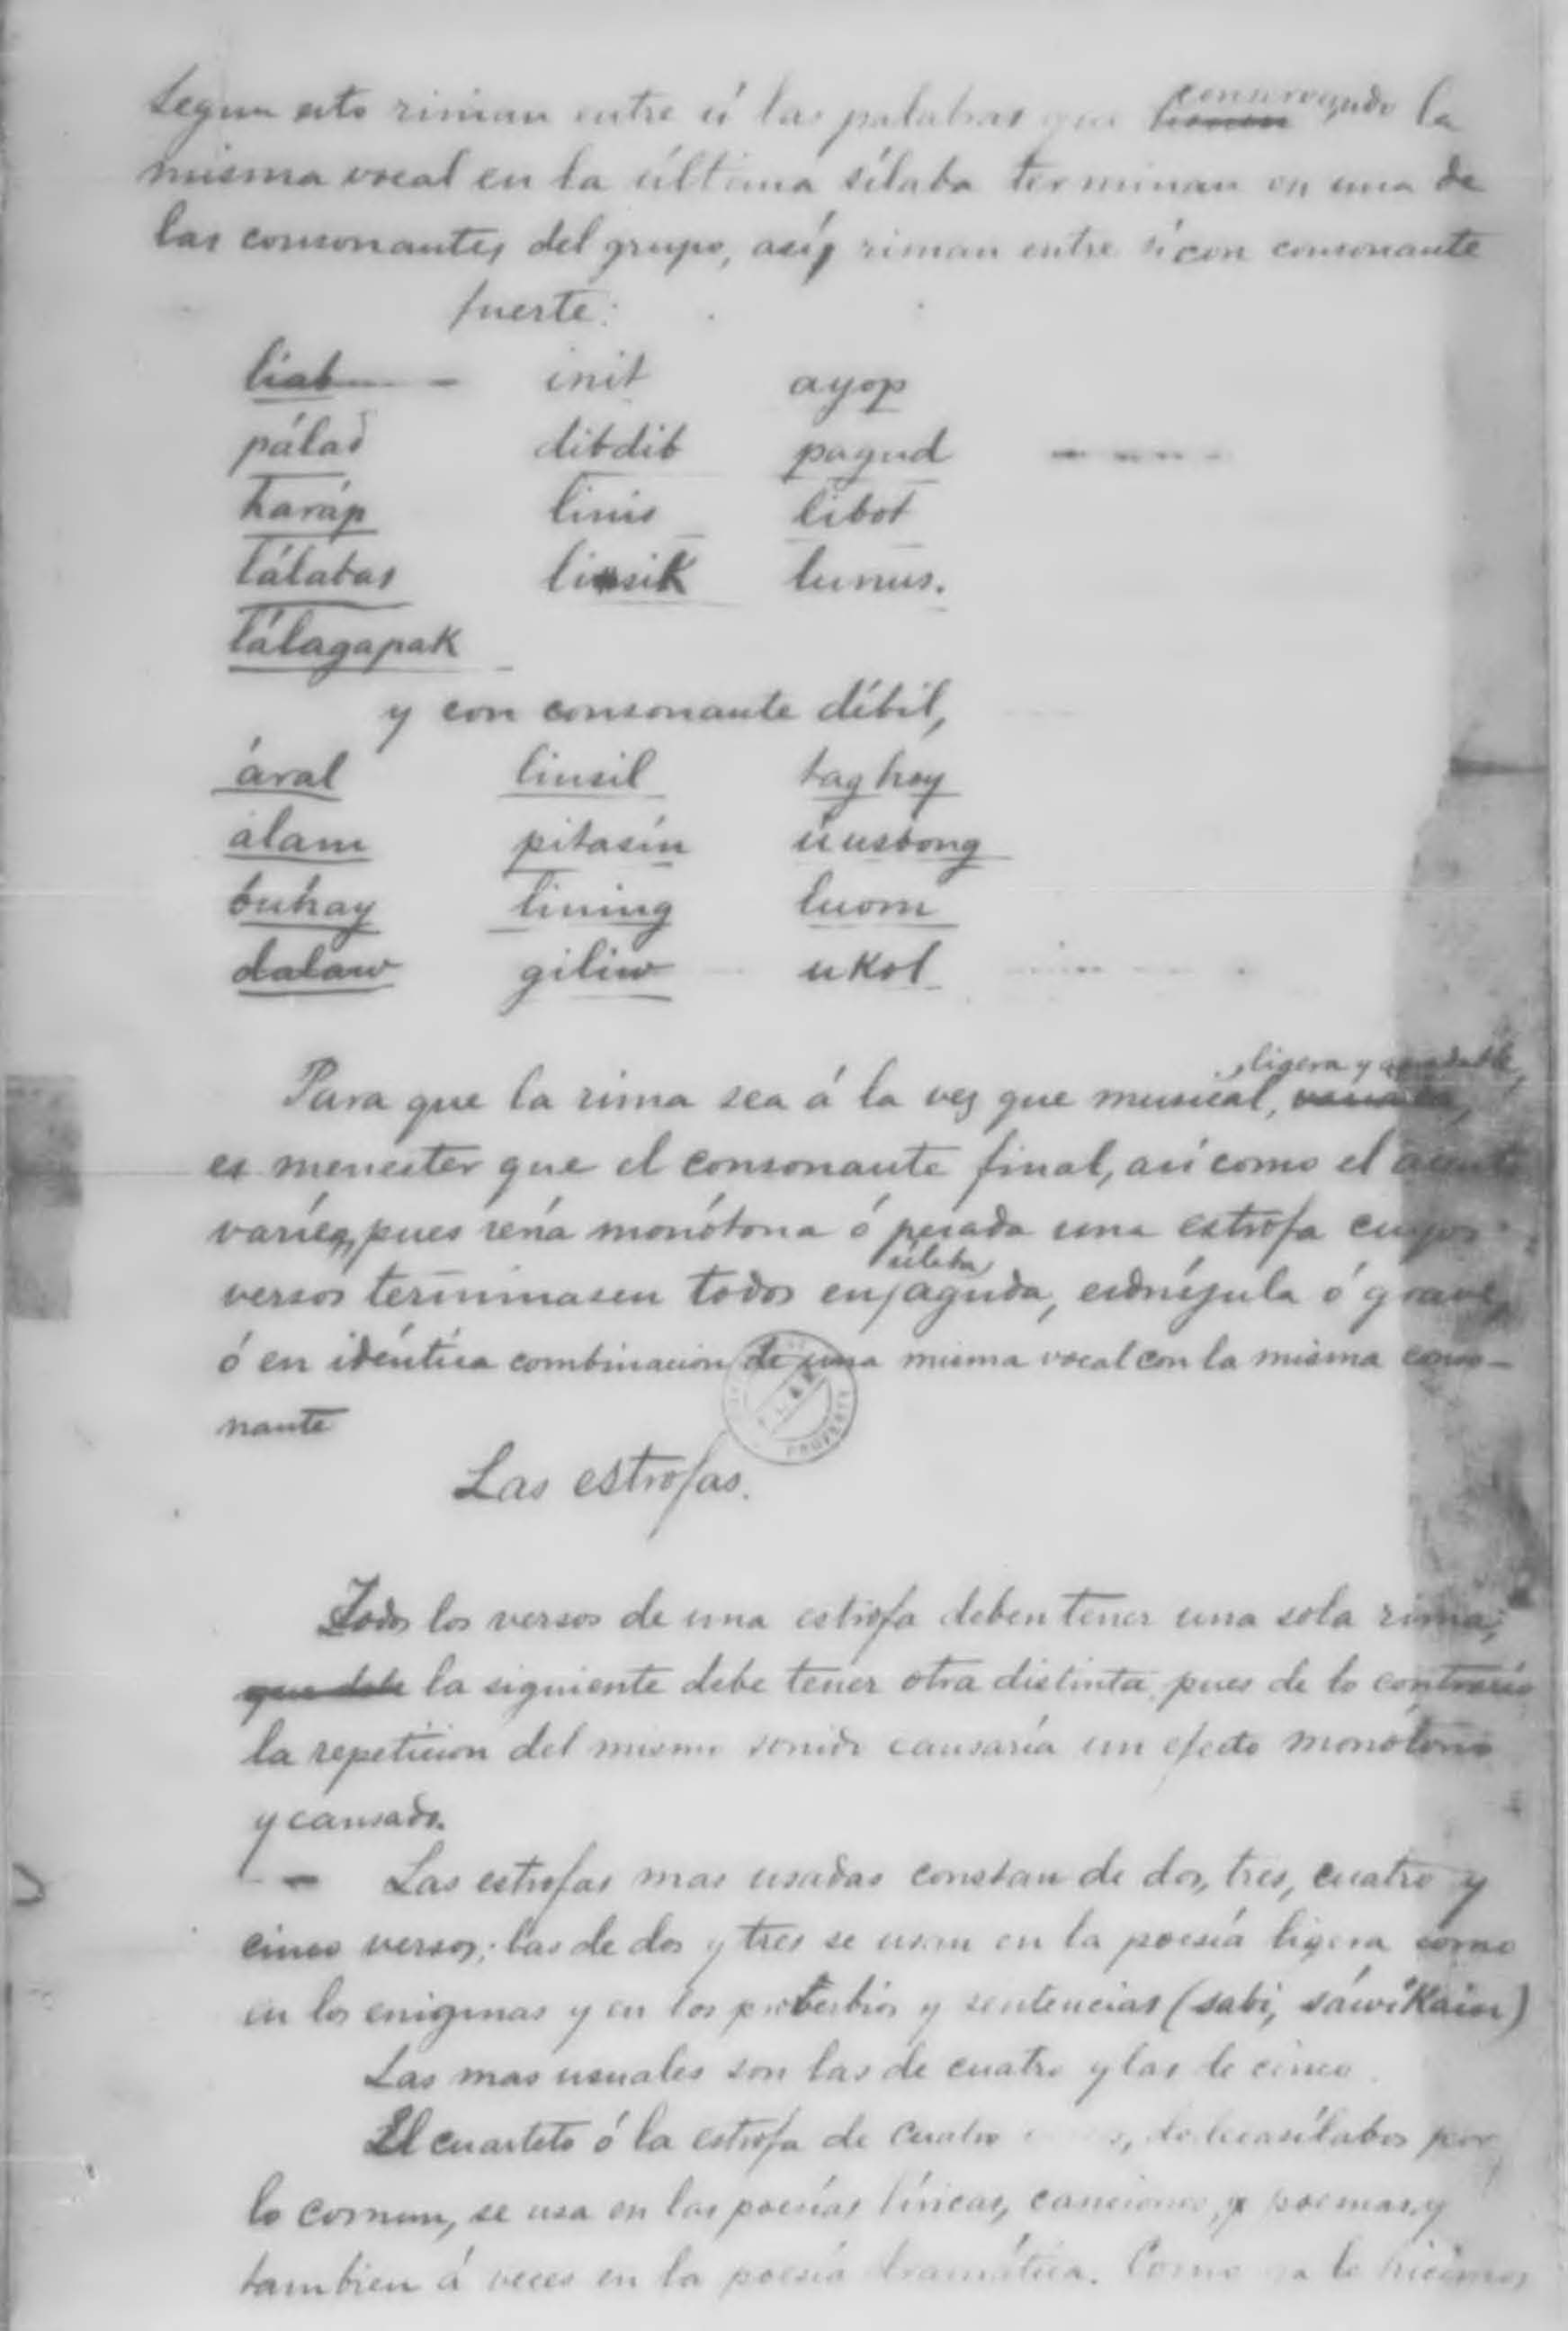 Segun esto riman entre sí las palabras que conservando la
misma vocal en la última sílaba terminan en una de
las consonantes del grupo, así, riman entre sí con consonante
fuerte:
liab init ayop
pálad dibdib pagud
haráp linis libot
tálabas linsik lunus.
tálagapak
y con consonante débil,
áral linsil taghoy
alam pitasín úusbong
buhay lining luom
dalaw giliw ukol
, ligera y agradable,
Para que la rima sea á la vez que musical,
es menester que el consonante final, así como el acento
varíen, pues sería monótona ó pesada una estrofa cuyos
sílaba
versos terminasen todos en aguda, esdrújula ó grave,
ó en idéntica combinacion de una misma vocal con la misma conso-
nante
Las estrofas.
Todos los versos de una estrofa deben tener una sola rima;
que debe la siguiente debe tener otra distinta, pues de lo contrario
la repeticion del mismo sonido causaría un efecto monótono
y cansado.
— Las estrofas mas usadas constan de dos, tres, cuatro y
cinco versos; las de dos y tres se usan en la poesía ligera como
en los enigmas y en los proberbios y sentencias (sabi, sáwikain)
Las mas usuales son las de cuatro y las de cinco.
El cuarteto ó la estrofa de cuatro dodecasílabos por
lo comun, se usa en las poesías líricas, canciones, poemas, y
tambien á veces en la poesía dramática. Como ya lo hicimos